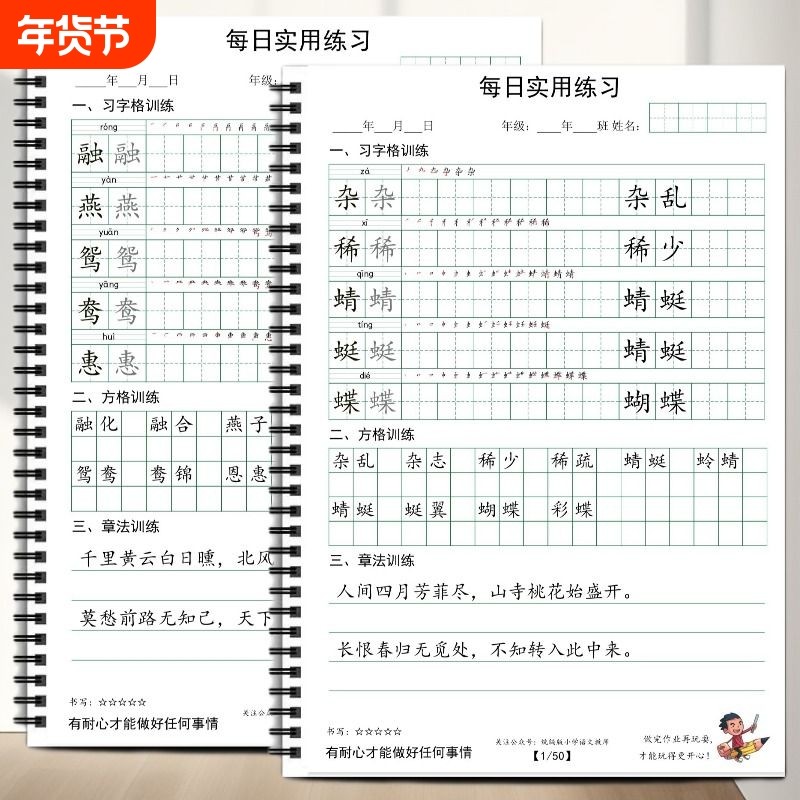 年货节
每日实用练习
年 月 日 年级:
一、习字格训练
róng
融 融
yàn
燕 燕
yuān
鸳 鸳
yāng
鸯 鸯
huì
惠 惠
二、方格训练
融化 融合 燕子
鸳鸯 鸯锦 恩惠
三、章法训练
千里黄云白日曛，北风
莫愁前路无知己，天下
书写：☆☆☆☆☆
关注公众
有耐心才能做好任何事情
每日实用练习
年 月 日 年级: 年 班 姓名:
一、习字格训练
zá
杂 杂 杂乱
xī
稀 稀 稀少
qīng
蜻 蜻 蜻蜓
tíng
蜓 蜓 蜻蜓
dié
蝶 蝶 蝴蝶
二、方格训练
杂乱 杂志 稀少 稀疏 蜻蜓 蛉蜻
蜻蜓 蜓翼 蝴蝶 彩蝶
三、章法训练
人间四月芳菲尽，山寺桃花始盛开。
长恨春归无觅处，不知转入此中来。
书写：☆☆☆☆☆
关注公众号：统编版小学语文教师
做完作业再玩耍，
有耐心才能做好任何事情
【1/50】
才能玩得更开心！